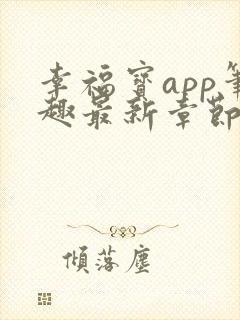 幸福寶app筆
趣最新章節
傾落塵